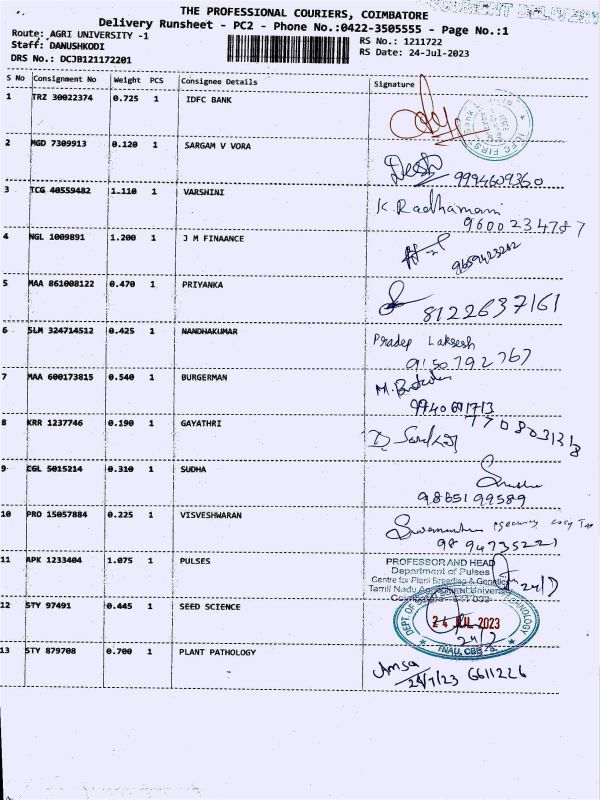 THE PROFESSIONAL COURIERS, COIMBATORE
Delivery Runsheet - PC2 - Phone No.:0422-3505555 - Page No.:1
Route: AGRI UNIVERSITY -1
RS No.: 1211722
Staff: DANUSHKODI
RS Date: 24-Jul-2023
DRS No.: DCJB121172201
S No Consignment No Weight PCS Consignee Details Signature
1 TRZ 30022374 0.725 1 IDFC BANK
2 MGD 7309913 0.120 1 SARGAM V VORA
9994609360
3 TCG 40559482 1.110 1 VARSHINI K.Radhamani
9600234787
4 NGL 1009891 1.200 1 J M FINAANCE
9659423202
5 MAA 861008122 0.470 1 PRIYANKA
8122637161
6 SLM 324714512 0.425 1 NANDHAKUMAR Pradep Laksesh
9150792767
7 MAA 600173815 0.540 1 BURGERMAN
9940601713
8 KRR 1237746 0.190 1 GAYATHRI
9 CGL 5015214 0.310 1 SUDHA
9865199589
10 PRO 15057884 0.225 1 VISVESHWARAN
9894735221
11 APK 1233404 1.075 1 PULSES
PROFESSOR AND HEAD
Department of Pulses
Centre for Plant Breeding & Genetics
Tamil Nadu Agricultural University
24/7
12 STY 97491 0.445 1 SEED SCIENCE
DEPT. OF TECHNOLOGY
24 JUL 2023
24/7
TNAU, CBE
13 STY 879708 0.700 1 PLANT PATHOLOGY
Amsa
24/7/23 6611226